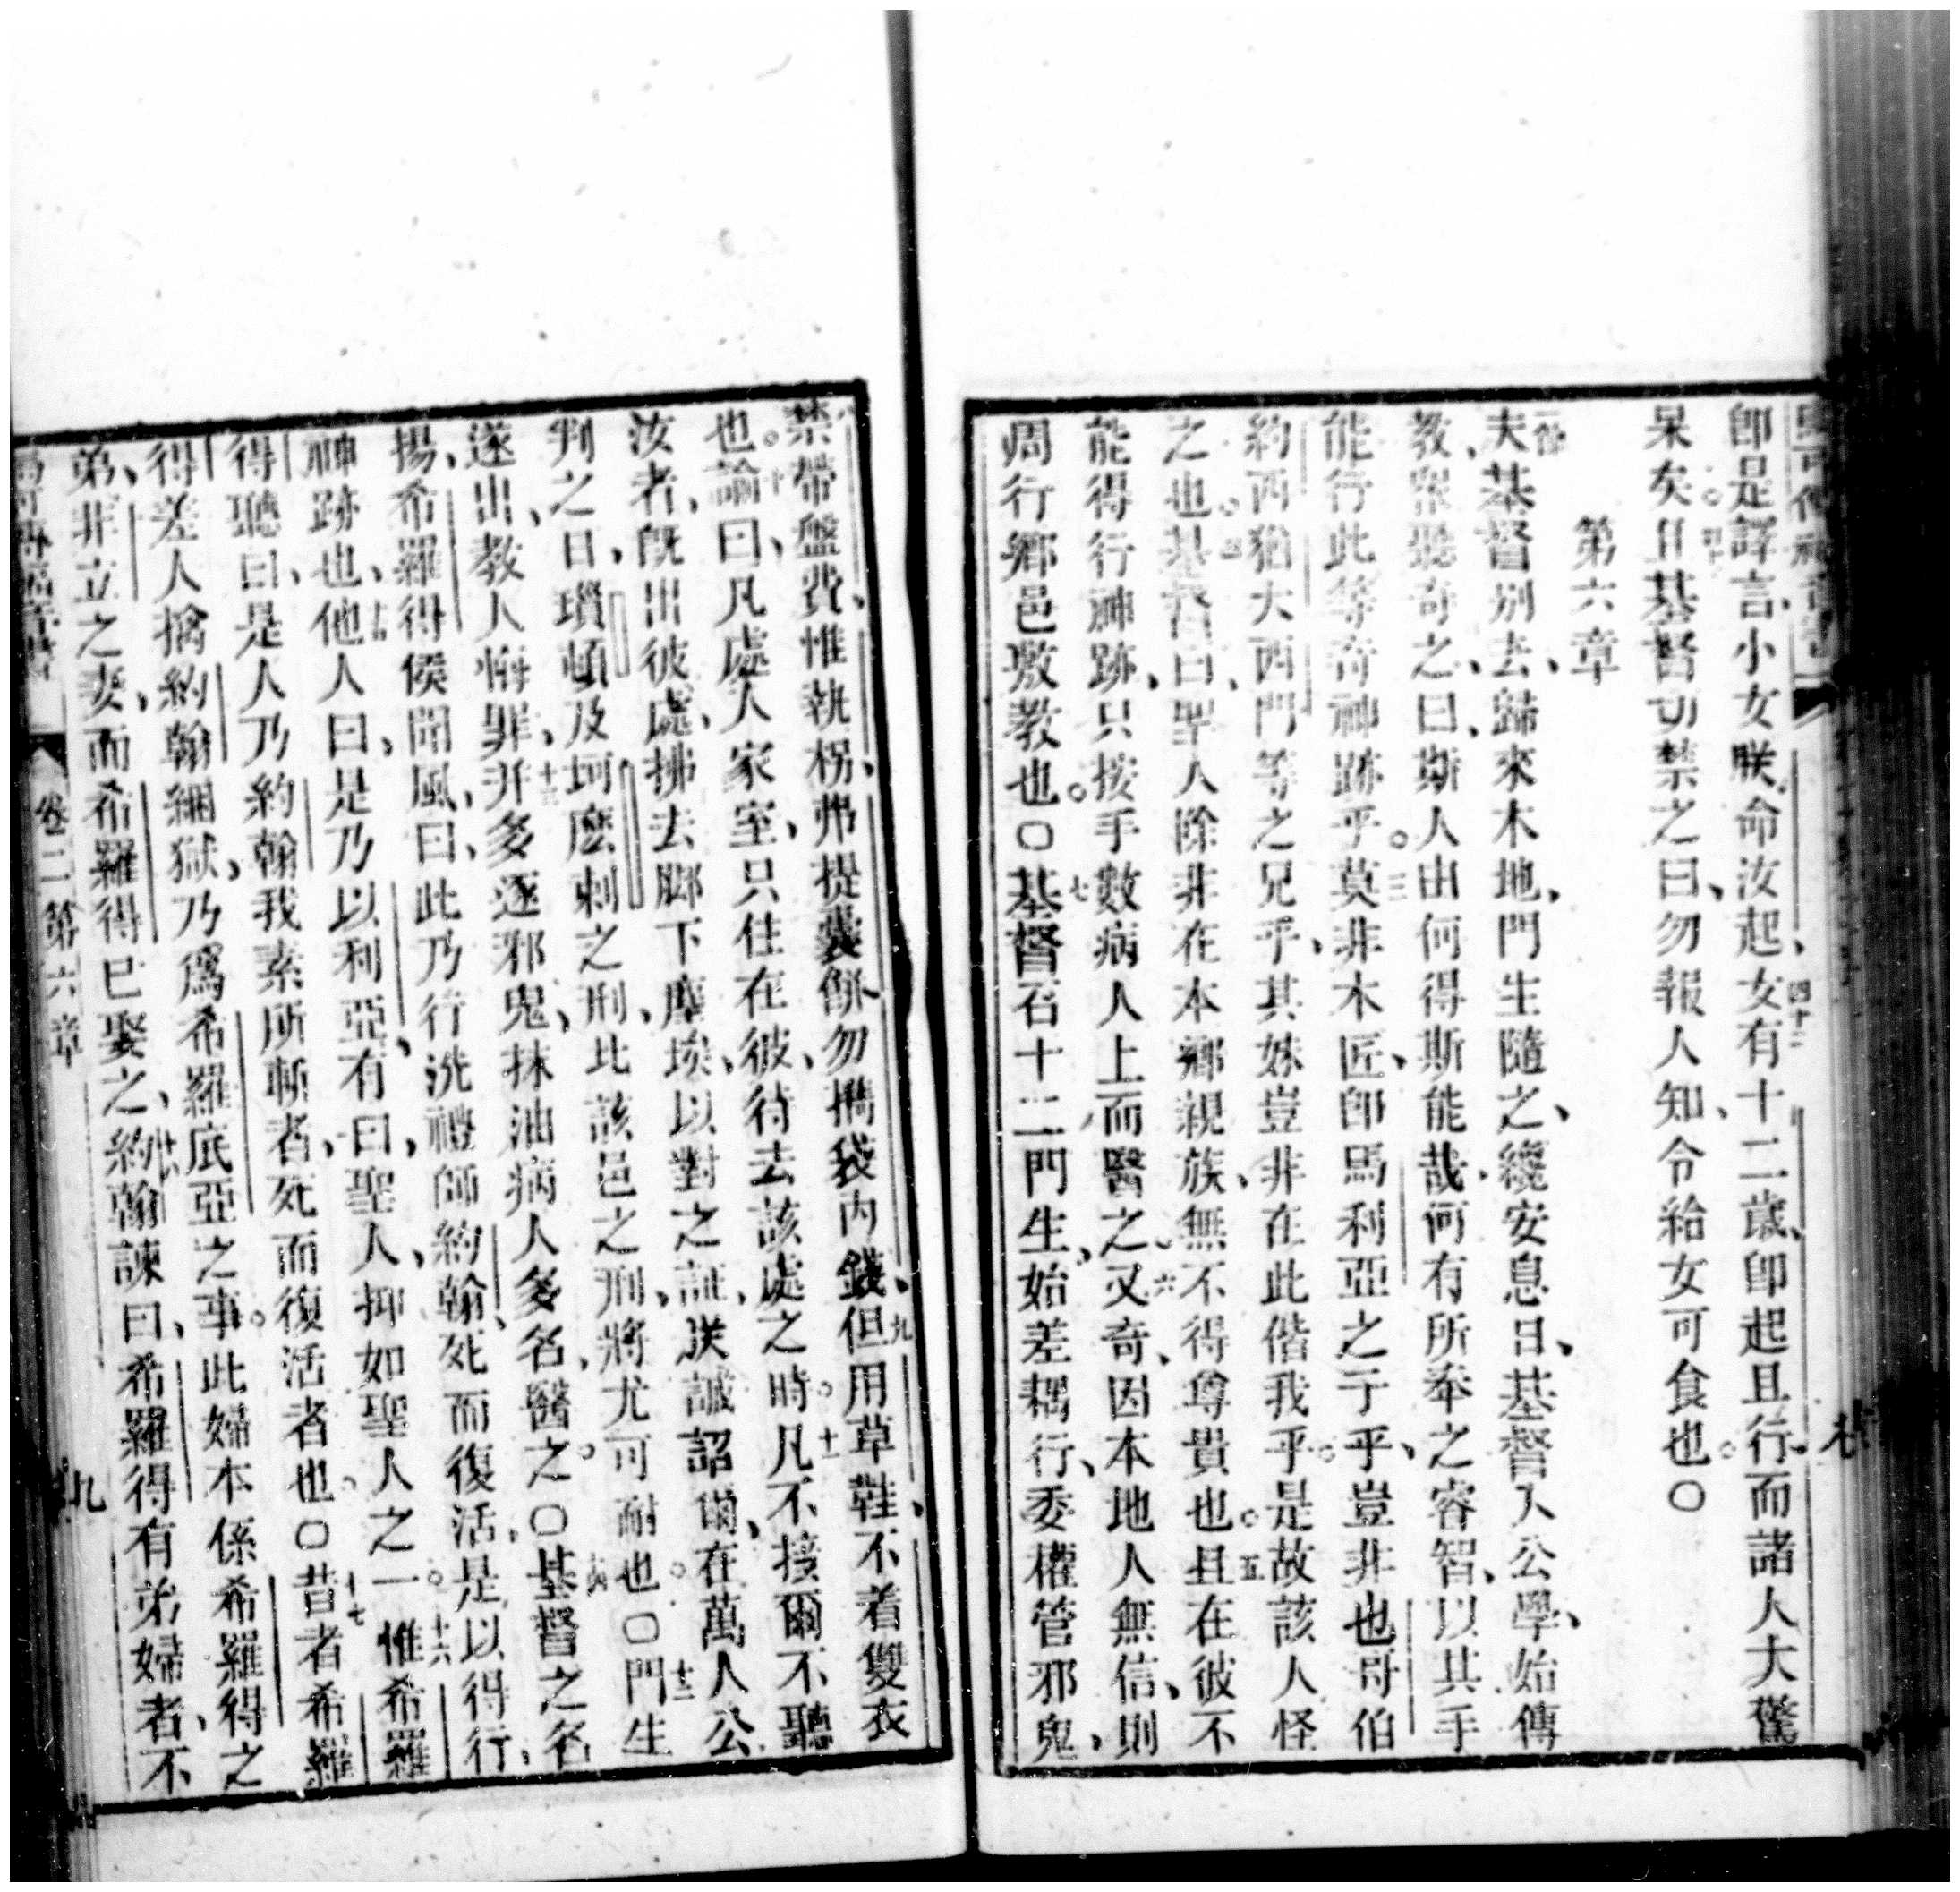 即是譯言、小女朕命汝起、女有十二歲、即起且行、而諸人大驚
呆矣。且基督切禁之曰、勿報人知、令給女可食也。〇
第六章
夫基督別去、歸來本地、門生隨之、纔安息日、基督入公學、始傳
教、眾聽奇之、曰、斯人由何得斯能哉、何有所奉之睿智、以其手
能行此等奇神跡乎。莫非木匠、即馬利亞之子乎、豈非也哥伯
約西猶大西門等之兄乎、其妹豈非在此偕我乎。是故該人怪
之也。基督曰、聖人除非在本鄉親族、無不得尊貴也。且在彼不
能得行神跡、只按手數病人上而醫之。又奇、因本地人無信、則
周行鄉邑敷教也。〇基督召十二門生、始差耦行、委權管邪鬼、
禁帶盤費、惟執柺、弗提囊餅、勿攜袋內錢、但用草鞋、不着雙衣
也。諭曰、凡處人家室、只住在彼、待去該處之時。凡不接爾不聽
汝者、既出彼處、拂去腳下塵埃、以對之証、朕誠詔爾、在萬人公
判之日、瑣頓及坷麽剌之刑、比該邑之刑、將尤可耐也。〇門生
遂出、教人悔罪、并多逐邪鬼、抹油病人多名、醫之。〇基督之名
揚、希羅得侯聞風、曰、此乃行洗禮師約翰、死而復活、是以得行
神跡也、他人曰、是乃以利亞、有曰、聖人、抑如聖人之一。惟希羅
得聽曰、是人乃約翰我素所斬者、死而復活者也。〇昔者希羅
得差人擒約翰綑獄、乃為希羅底亞之事。此婦本係希羅得之
弟、非立之妻、而希羅得已娶之、約翰諫曰、希羅得有弟婦者、不
卷二第六章
九